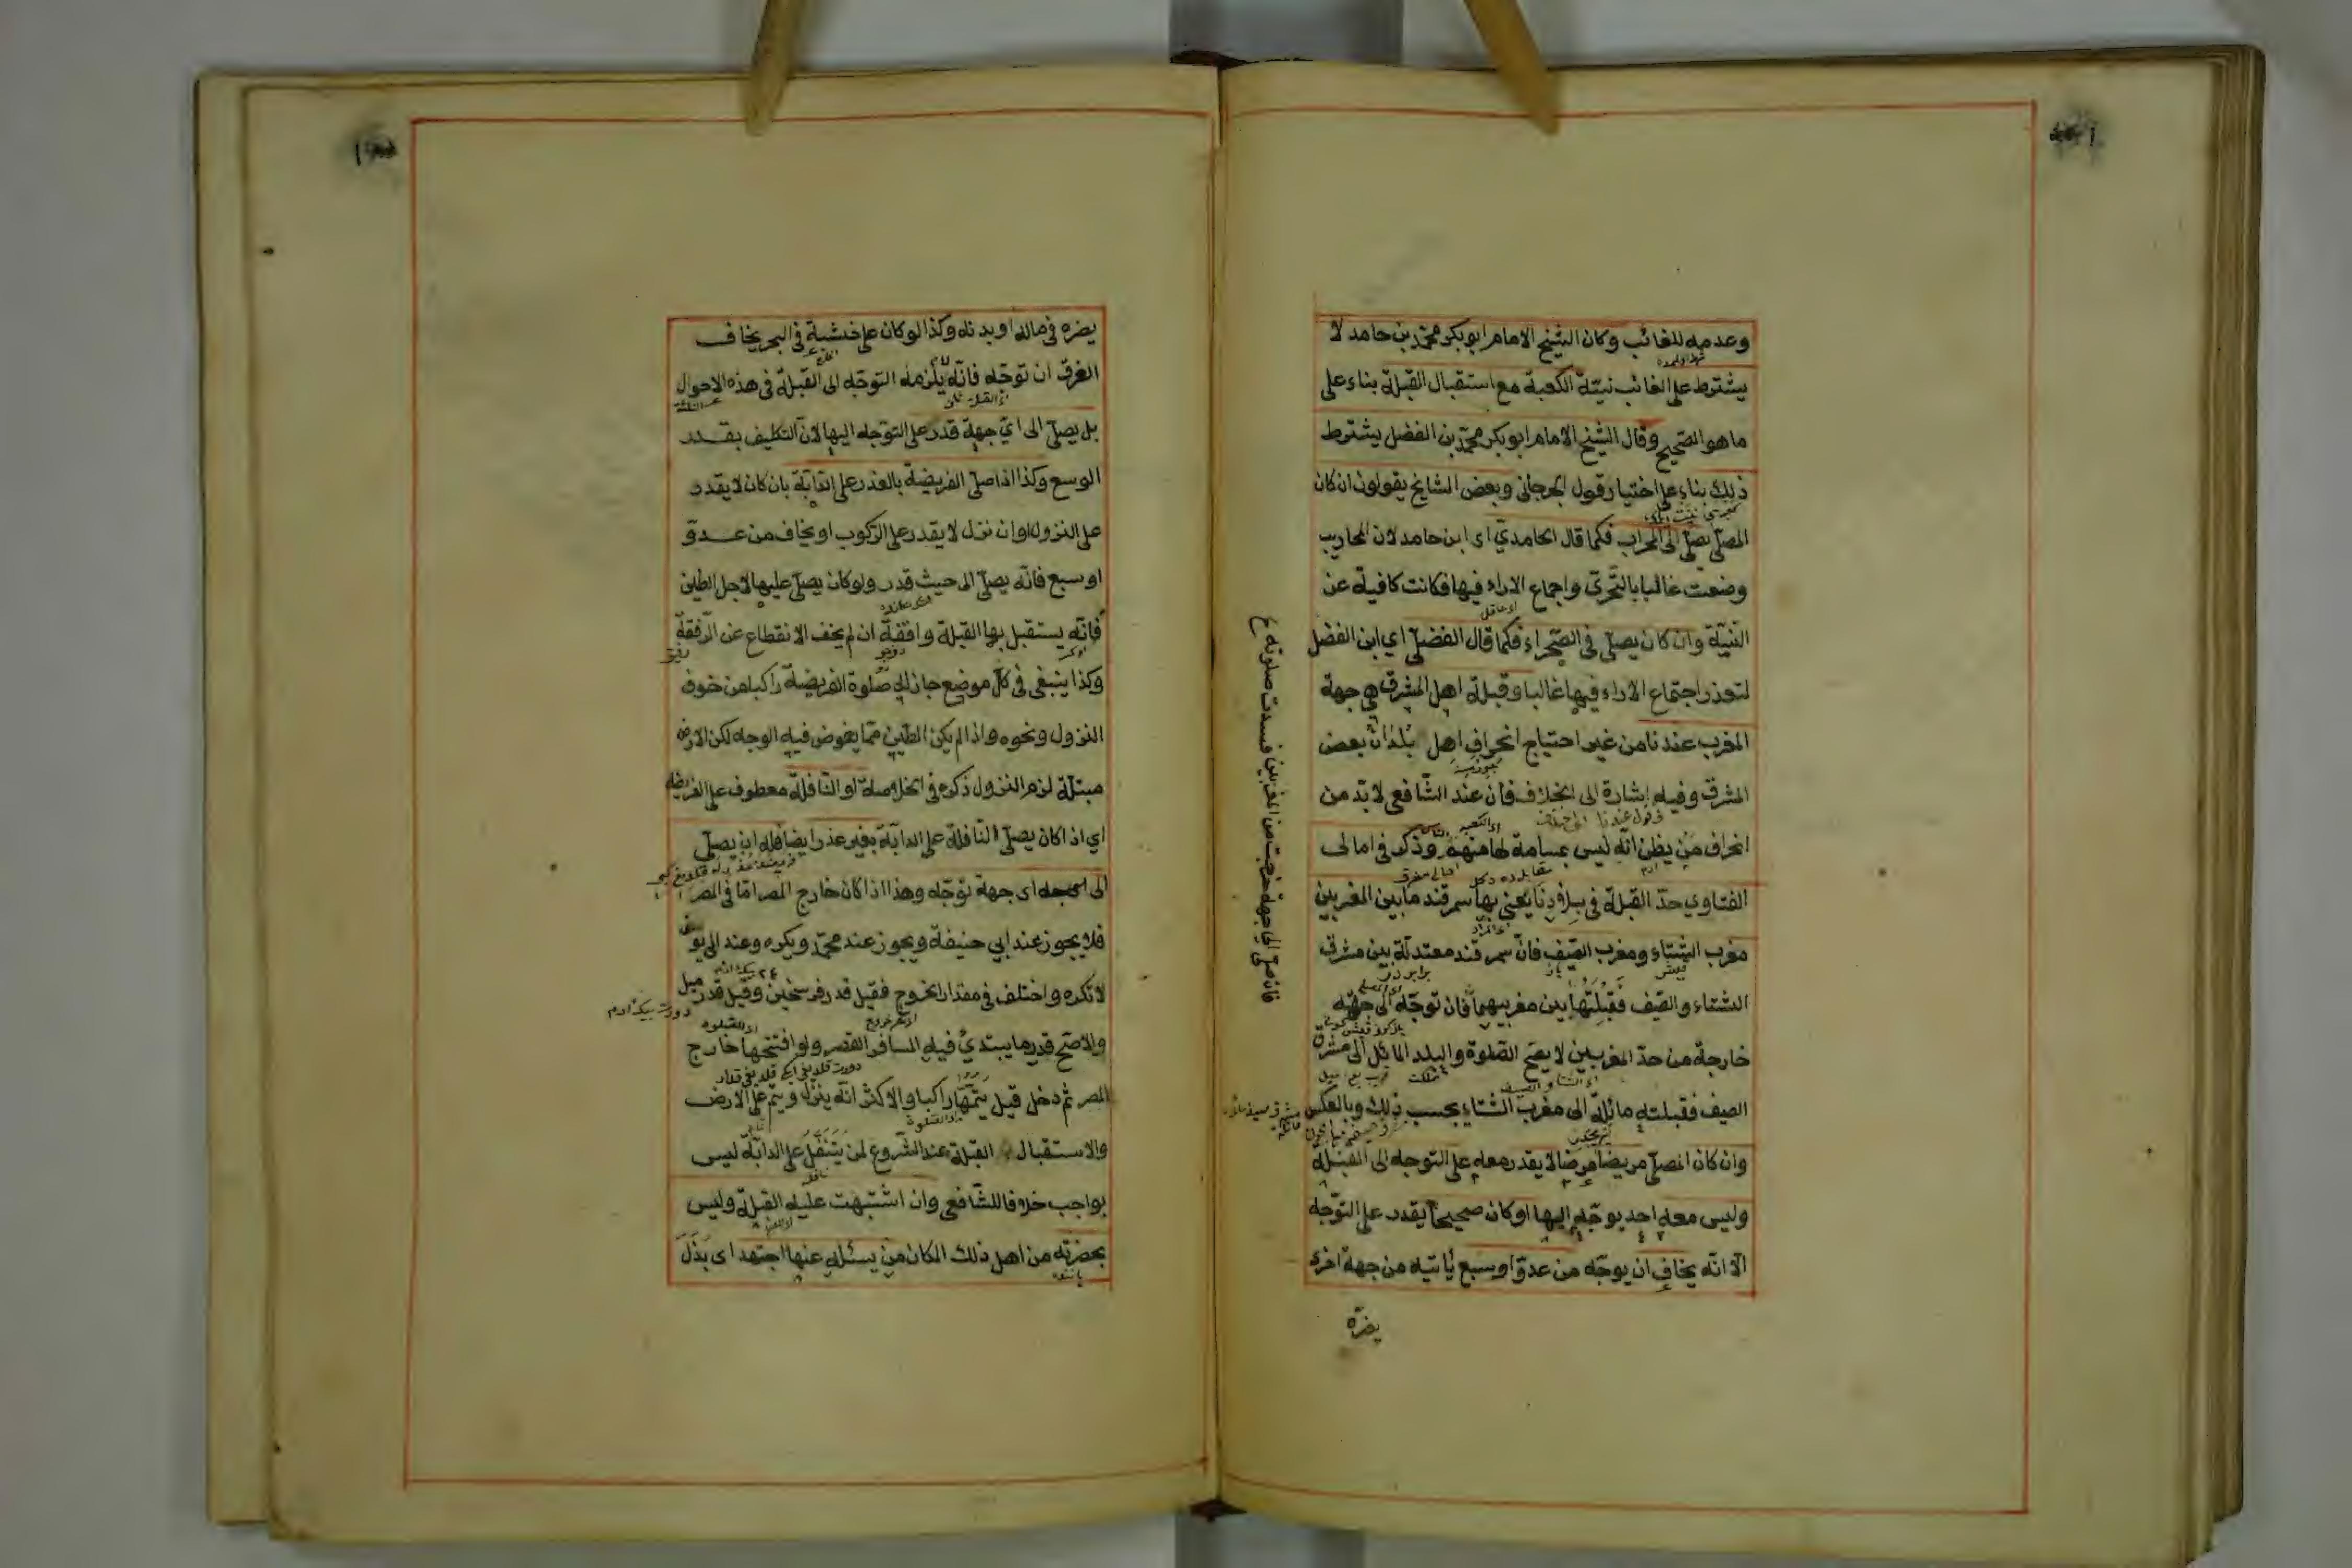 وعدمه للغائب وكان الشيخ الامام ابو بكر محمد بن حامد لا
يشترط على الغائب نيّة الكعبة مع استقبال القبلة بناء على
ما هو الصحيح وقال الشيخ الامام ابو بكر محمد بن الفضل يشترط
ذلك بناء على اختيار قول الجرجانى وبعض المشايخ يقولون ان كان
المصلّى يصلّى الى المحراب فكما قال الحامديّ اى ابن حامد لان المحاريب
وضعت غالبا بالتحرّى واجماع الاراء فيها فكانت كافية عن
النيّة وان كان يصلّى فى الصّحراء فكما قال الفضلىّ اي ابن الفضل
لتعذر اجتماع الاراء فيها غالبا وقبلة اهل المشرق هى جهة
المغرب عندنا من غير احتياج انحراف اهل بلدان بعض
المشرق وفيه اشارة الى الخلاف فان عند الشّافعى لا بدّ من
انحراف من يظن انّه ليس بمسامة لها منهم وذكر فى امالى
الفتاوي حدّ القبلة فى بلادنا يعنى بها سمرقند ما بين المغربين
مغرب الشتاء ومغرب الصّيف فانّ سمرقند معتدلة بين مشرق
الشتاء والصّيف فقبلتها بين مغربيهما فان توجّه الى جهة
خارجة من حدّ المغربين لا يصحّ الصّلوة والبلد المائل الى مشرق
الصيف فقبلته مائلة الى مغرب الشتاء بحسب ذلك وبالعكس
وان كان المصلّى مريضا مرضا لا يقدر معه على التوجه الى القبلة
وليس معه احد يوجّهه اليها او كان صحيحا يقدر على التوجّه
الّا انّه يخاف ان يوجّه من عدوّ او سبع يأتيه من جهة اخرى
يضرّه
فان صلّى الى جهة خرجت من المغربين فسدت صلوته
يضره فى ماله او بدنه وكذا لو كان على خشبة فى البحر يخاف
الغرق ان توجّه فانّه يلزمه التوجّه الى القبلة فى هذه الاحوال
بل يصلّى الى ايّ جهة قدر على التوجّه اليها لانّ التكليف بقدر
الوسع وكذا اذا صلّى الفريضة بالعذر على الدّابّة بان كان لا يقدر
على النزول او ان نزل لا يقدر على الرّكوب او يخاف من عدوّ
او سبع فانّه يصلّى الى حيث قدر ولو كان يصلّى عليها لاجل الطين
فانّه يستقبل بها القبلة واقفة ان لم يخف الانقطاع عن الرّفقة
وكذا ينبغى فى كلّ موضع جاز له صلوة الفريضة راكبا من خوف
النزول ونحوه واذا لم يكن الطّين ممّا يغوض فيه الوجه لكن الارض
مبتلّة لزم النزول ذكره فى الخلاصة او النّافلة معطوف على الفريضة
اي اذا كان يصلّى النّافلة على الدابّة بغير عذر ايضا فله ان يصلّى
الى اى جهة توجّه وهذا اذا كان خارج المصر امّا فى المصر
فلا يجوز عند ابي حنيفة ويجوز عند محمّد ويكره وعند ابى يوسف
لا تكره واختلف فى مقدار الخروج فقيل قدر فرسخين وقيل قدر ميل
والاصحّ قدر ما يبتدئ فيه المسافر القصر ولو افتتحها خارج
المصر ثم دخل قيل يتمّها راكبا والاكثر انّه ينزل ويتم على الارض
والاستقبال القبلة عند الشّروع لمن يتنفّل على الدابّة ليس
بواجب خلافا للشّافعى وان اشتبهت عليه القبلة وليس
بحضرته من اهل ذلك المكان من يسئله عنها اجتهد اى بذل